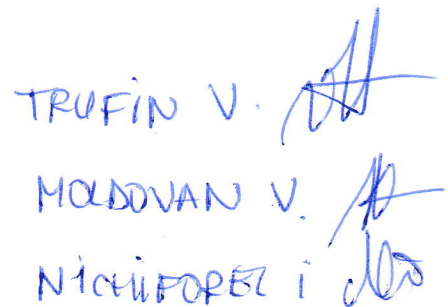 TRUFIN V.
MOLDOVAN V.
NICHIFOREL I